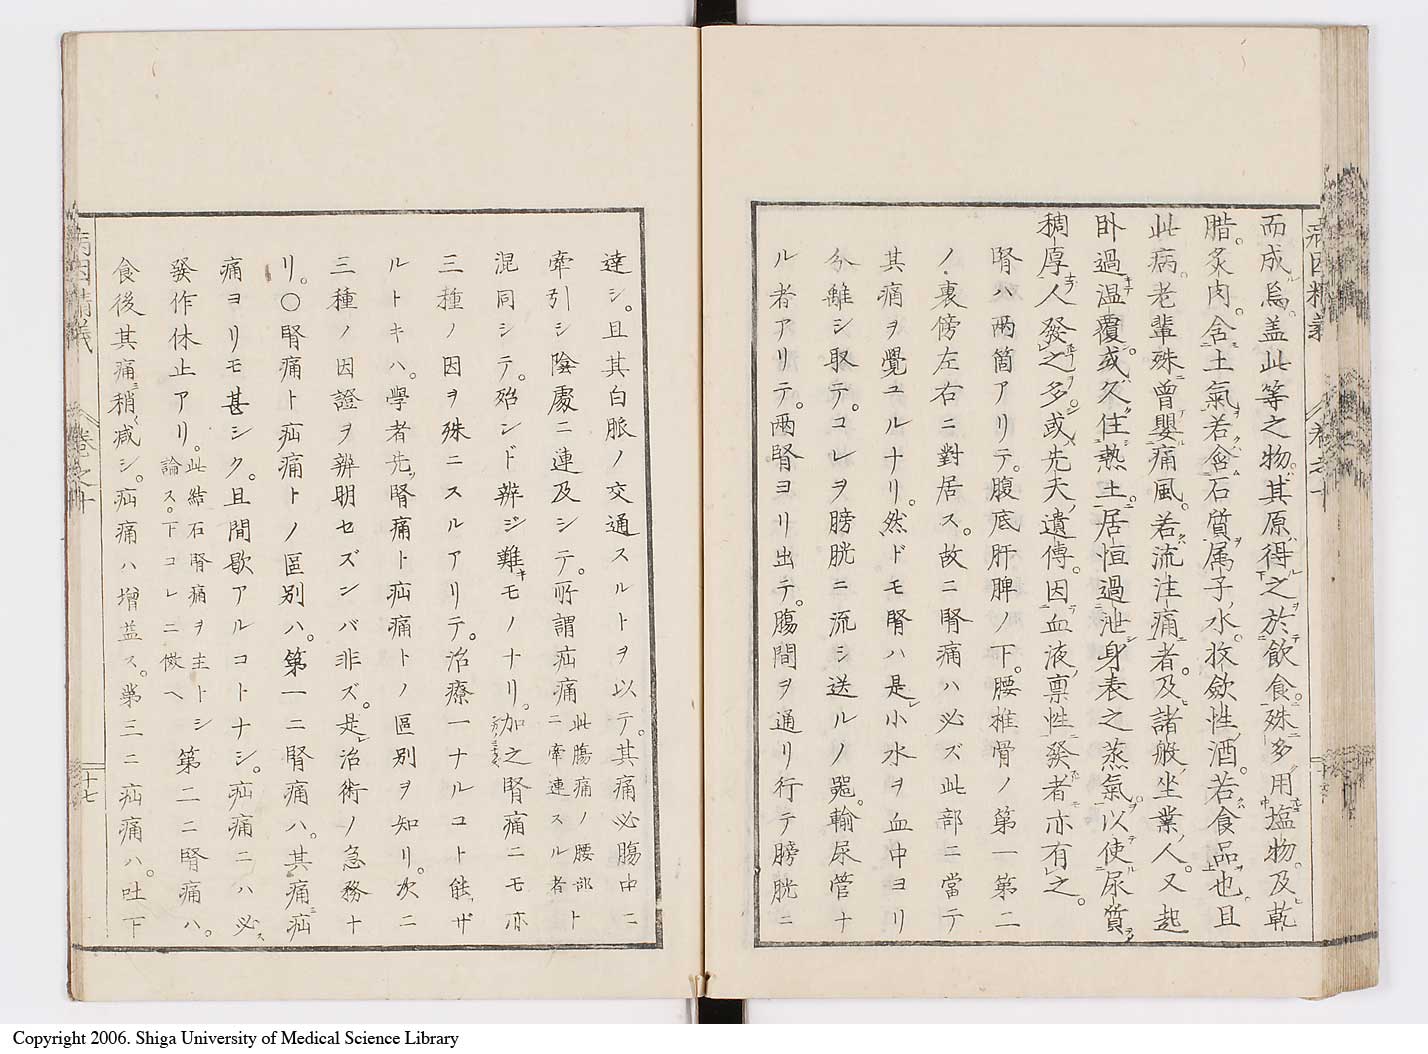 而成焉。盖此等之物。其原得之於飲食。殊多用塩物。及乾
腊。炙肉。含土氣。若含石質属子水。收斂性酒。若食品也。且
此病。老輩殊曾嬰痛風。若流注痛者。及諸般坐業人。又起
卧過温覆。或久住熱土。居恒過泄身表之蒸氣。以使尿質
稠厚人發之多。或先天遺傳。因血液禀性發者亦有之。
腎ハ两箇アリテ。腹底肝脾ノ下。腰椎骨ノ第一第二
ノ裏傍左右ニ對居ス。故ニ腎痛ハ必ズ此部ニ當テ
其痛ヲ覺ユルナリ。然ドモ腎ハ是小水ヲ血中ヨリ
分離シ取テ。コレヲ膀胱ニ流シ送ルノ噐。輸尿管ナ
ル者アリテ。两腎ヨリ出テ。膓間ヲ通リ行テ膀胱ニ
達シ。且其白脈ノ交通スルトヲ以テ。其痛必膓中ニ
牽引シ陰處ニ連及シテ。所謂疝痛此膓痛ノ腰部トニ牽連スル者
混同シテ。殆ンド辨ジ難キモノナリ。加之腎痛ニモ亦
三種ノ因ヲ殊ニスルアリテ。治療一ナルコト能ザ
ルトキハ。學者先腎痛ト疝痛トノ區別ヲ知リ。次ニ
三種ノ因證ヲ辨明セズンバ非ズ。是治術ノ急務ナ
リ。〇腎痛ト疝痛トノ區別ハ。第一ニ腎痛ハ。其痛疝
痛ヨリモ甚シク。且間歇アルコトナシ。疝痛ニハ必ス
發作休止アリ。此結石腎痛ヲ主トシ論ス。下コレニ倣ヘ第二ニ腎痛ハ。
食後其痛稍減シ。疝痛ハ増益ス。第三ニ疝痛ハ。吐下
巻之十
十七
Copyright 2006. Shiga University of Medical Science Library